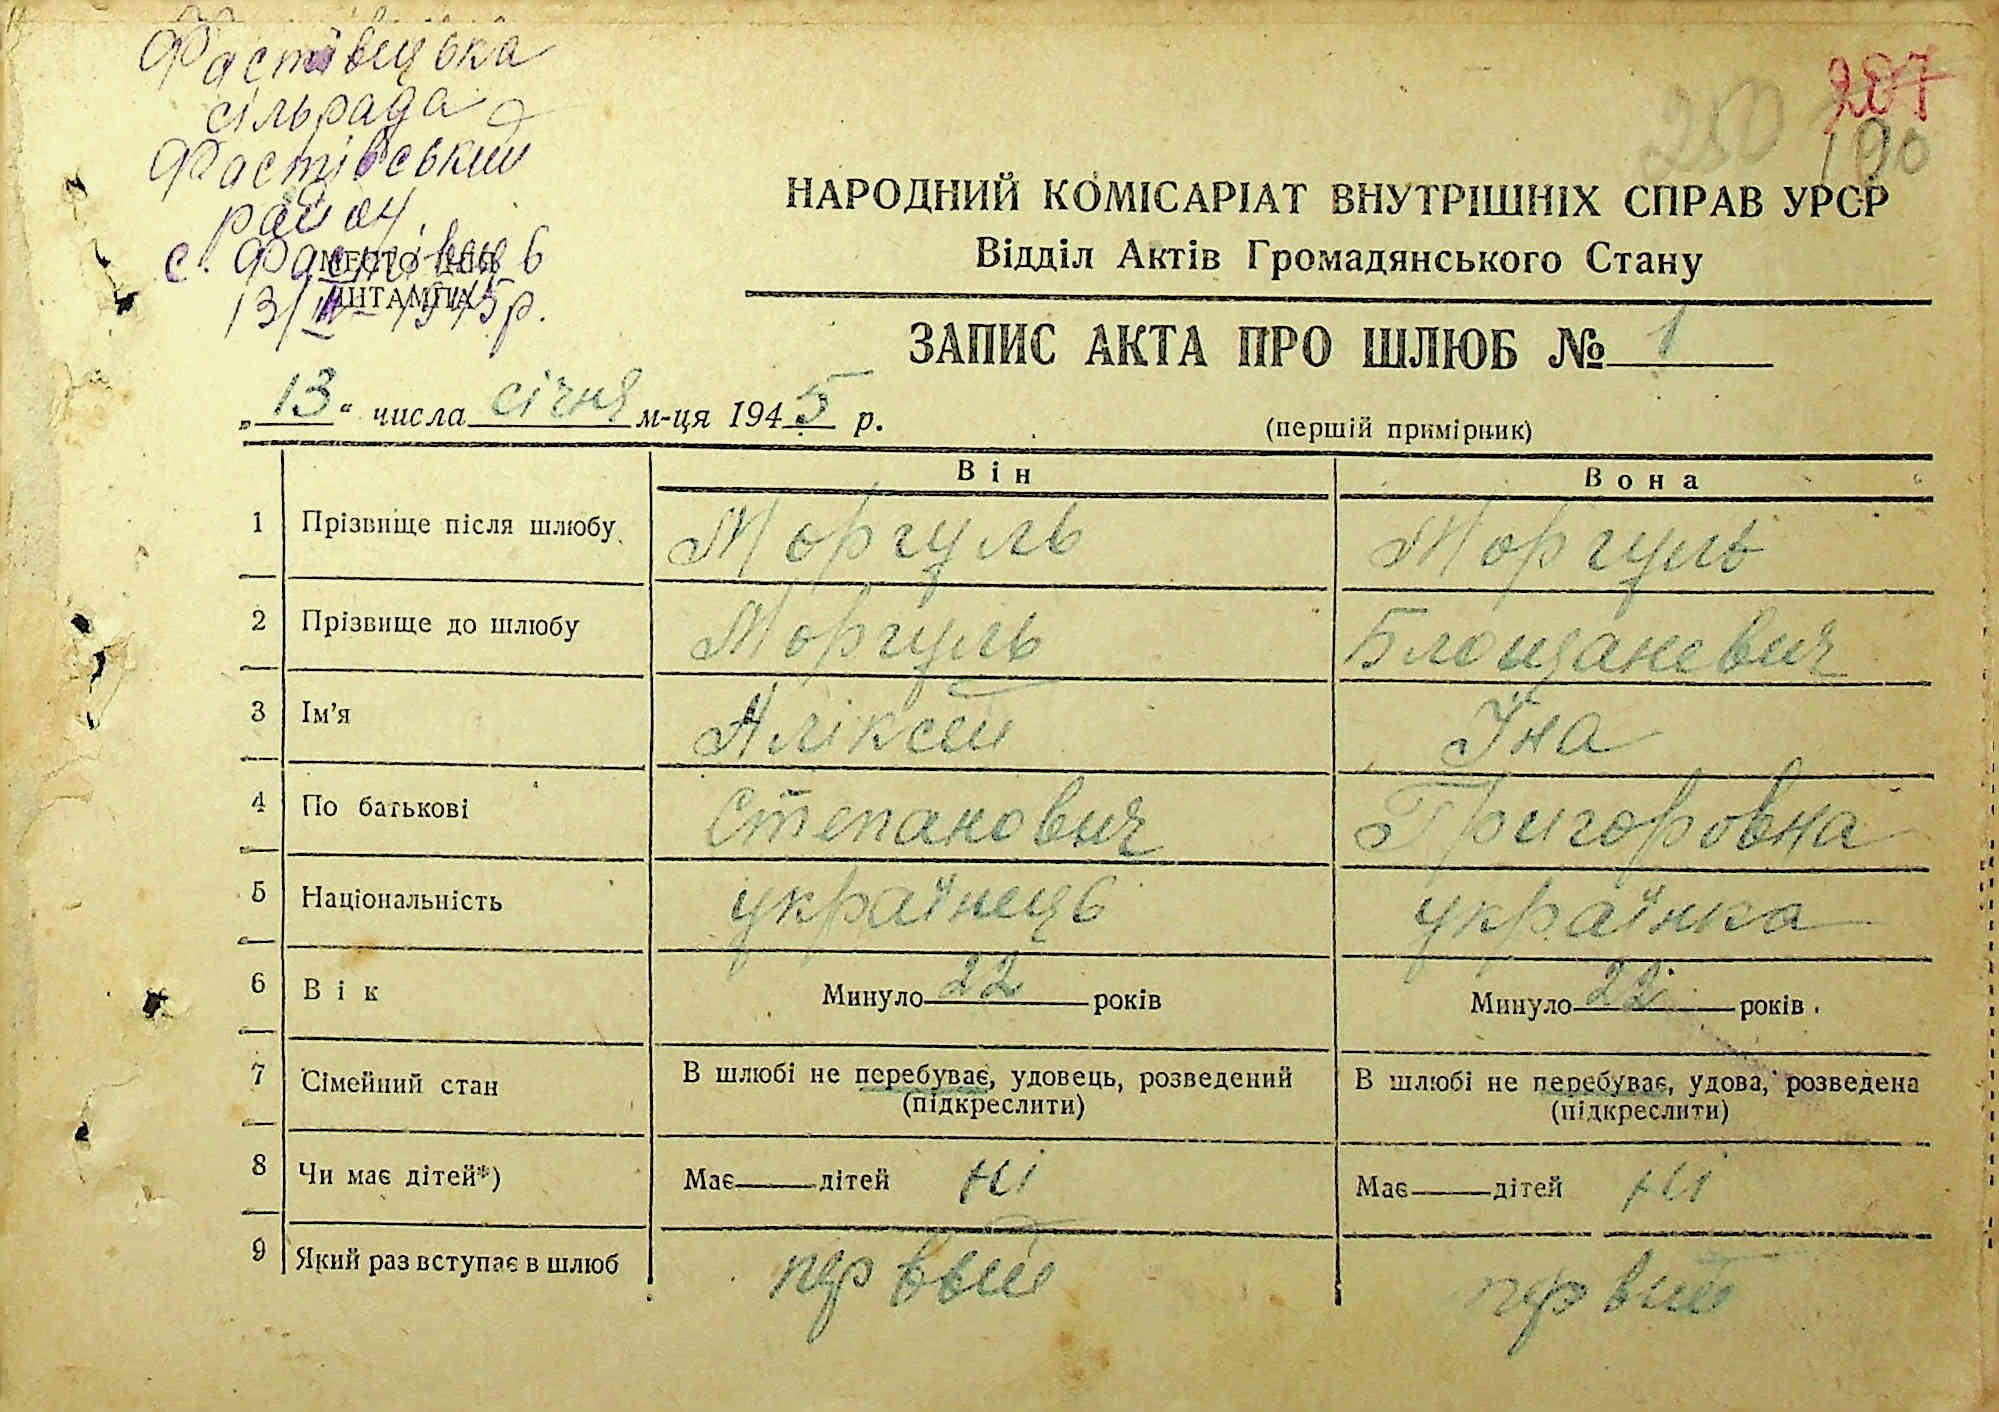 Фастівецька
сільрада
Фастівський
район
с. Фастівець
МЕСТО ДЛЯ
ШТАМПА
13/ 1945р.
207
250
100
НАРОДНИЙ КОМІСАРІАТ ВНУТРІШНІХ СПРАВ УРСР
Відділ Актів Громадянського Стану
ЗАПИС АКТА ПРО ШЛЮБ № 1
„13“ числа січня м-ця 1945 р.
(першій примірник)
Він Вона
1 Прізвище після шлюбу Моргуль Моргуль
2 Прізвище до шлюбу Моргуль Блощаневич
3 Ім'я Аліксей Їна
4 По батькові Степанович Григоровна
5 Національність українець українка
6 Вік Минуло 22 років Минуло 22 років
7 Сімейний стан В шлюбі не перебуває, удовець, розведений В шлюбі не перебуває, удова, розведена
(підкреслити) (підкреслити)
8 Чи має дітей*) Має — дітей ні Має — дітей ні
9 Який раз вступає в шлюб первый первий